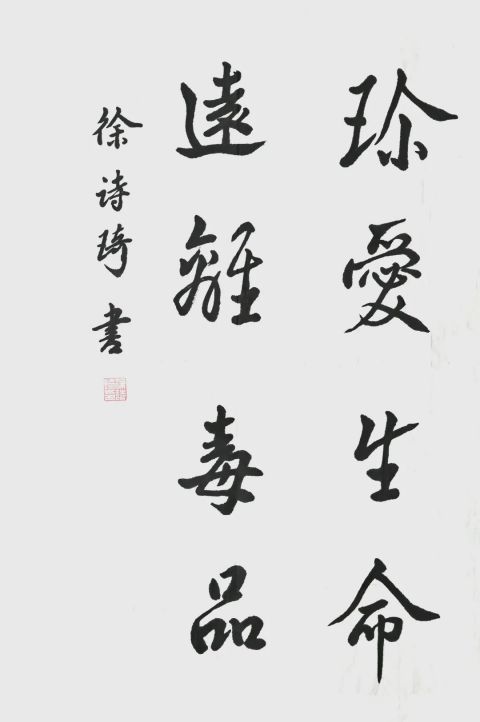 珎愛生命
遠離毒品
徐诗琦書